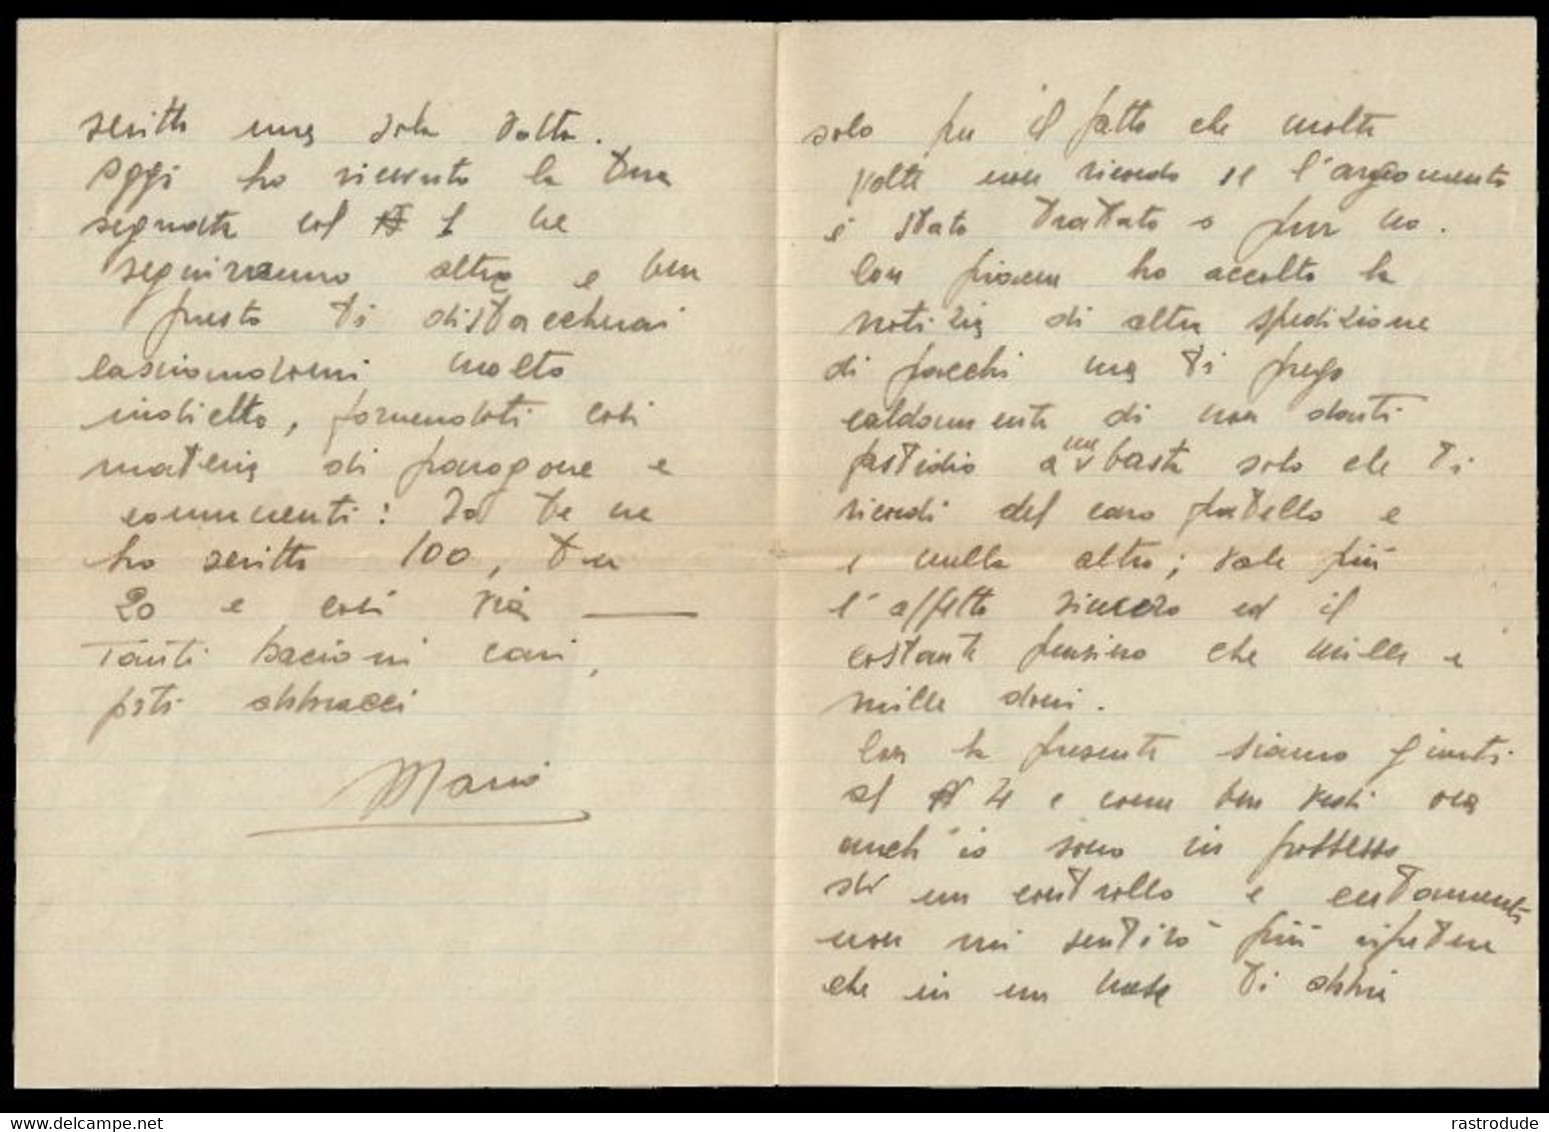 solo per il fatto che molte
volte non ricordo se l'argomento
è stato trattato o pur no.
Con piacere ho accolto la
notizia di altra spedizione
di pacchi ma ti prego
caldamente di non darti
fastidio a me basta solo che ti
ricordi del caro fratello e
e nulla altro; vale più
l'affetto sincero ed il
costante pensiero che mille e
mille doni.
Con la presente siamo giunti
al N 4 e come ben vedi ora
anch'io sono in possesso
di un controllo e certamente
non mi sentirò più ripetere
che in un mese ti abbia
scritto una sola volta.
Oggi ho ricevuto la tua
segnata col N 1 ne
seguiranno altre e ben
presto ti distaccherai
lasciandomi molto
indietro, fornendoti così
materia di paragone e
commenti: Io te ne
ho scritto 100, tu
20 e così via —
Tanti bacioni cari,
forti abbracci
Mario
www.delcampe.net
rastrodude